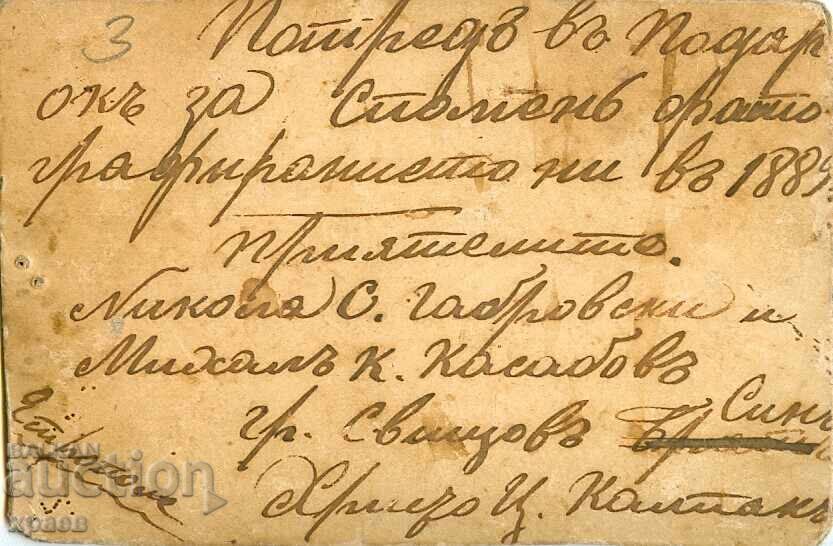 3
Потредъ въ Подар
окъ за Споменъ фото
графиранието ни въ 1889
приятелите.
Никола С. Габровски и
Михалъ К. Касабовъ
гр. Свищовъ
Синъ
Христо Ц. Калпакч
BALKAN
auction
храсв